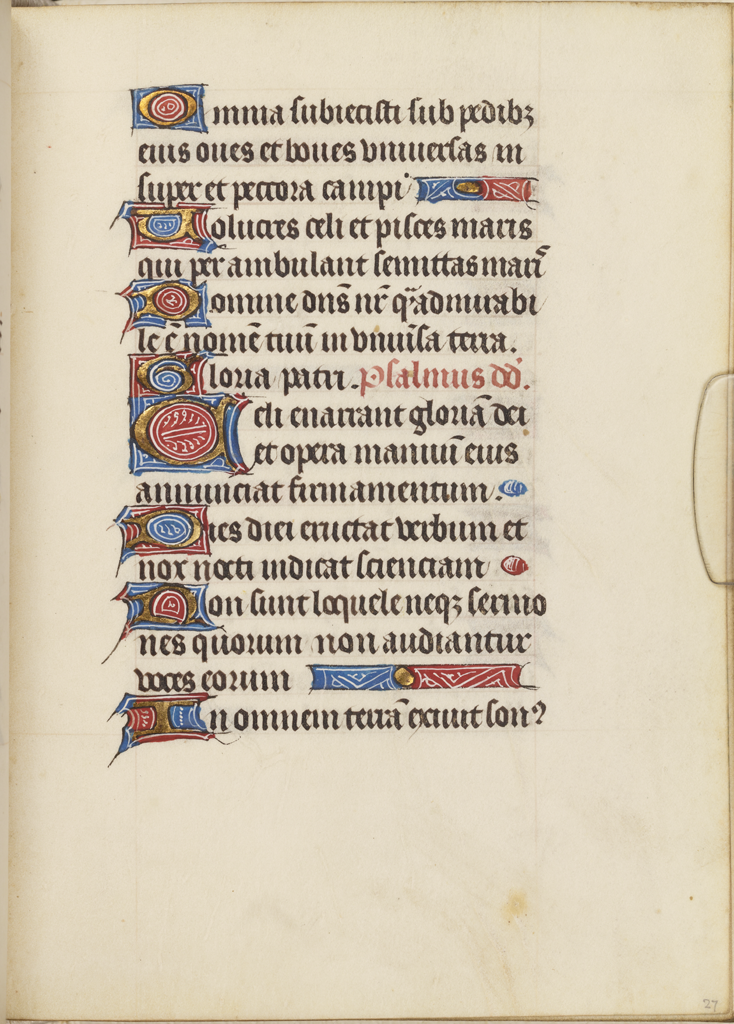 Omnia subiecisti sub pedibꝫ
eius oues et boues vniuersas in
super et pectora campi
Volucres celi et pisces maris
qui per ambulant semittas marꝭ
Domine dn̄s nr̄ qͣ admirabi
le ē nomē tuū in vniūsa terra.
Gloria patri. Psalmus dd̄.
Celi enarrant gloriā dei
et opera manuū eius
annunciat firmamentum.
Dies diei eructat verbum et
nox nocti indicat scienciam
Non sunt loquele neqꝫ sermo
nes quorum non audiantur
voces eorum
In omnem terrā exiuit sonꝰ
27